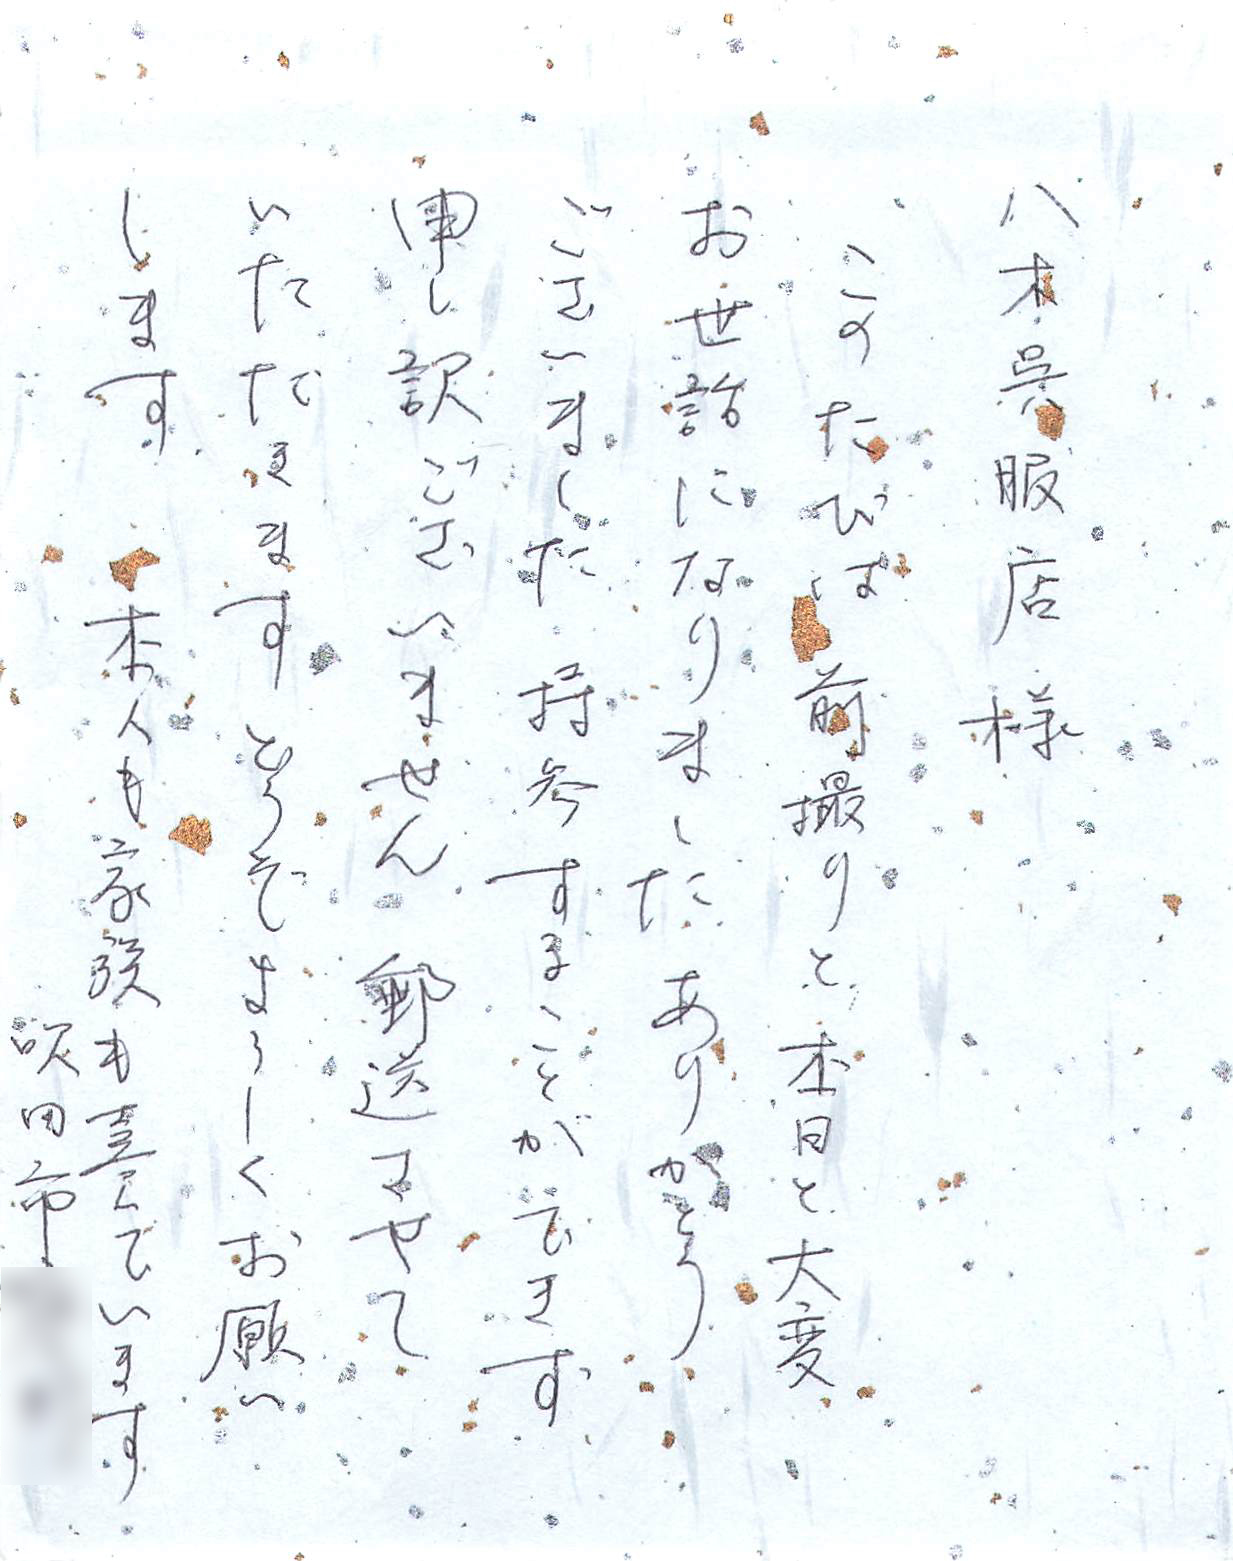 八木呉服店様
このたびは前撮りと本日と大変
お世話になりました ありがとう
ございました 持参することができず
申し訳ございません 郵送させて
いただきます どうぞよろしくお願い
します 本人も家族も喜んでいます
吹田市